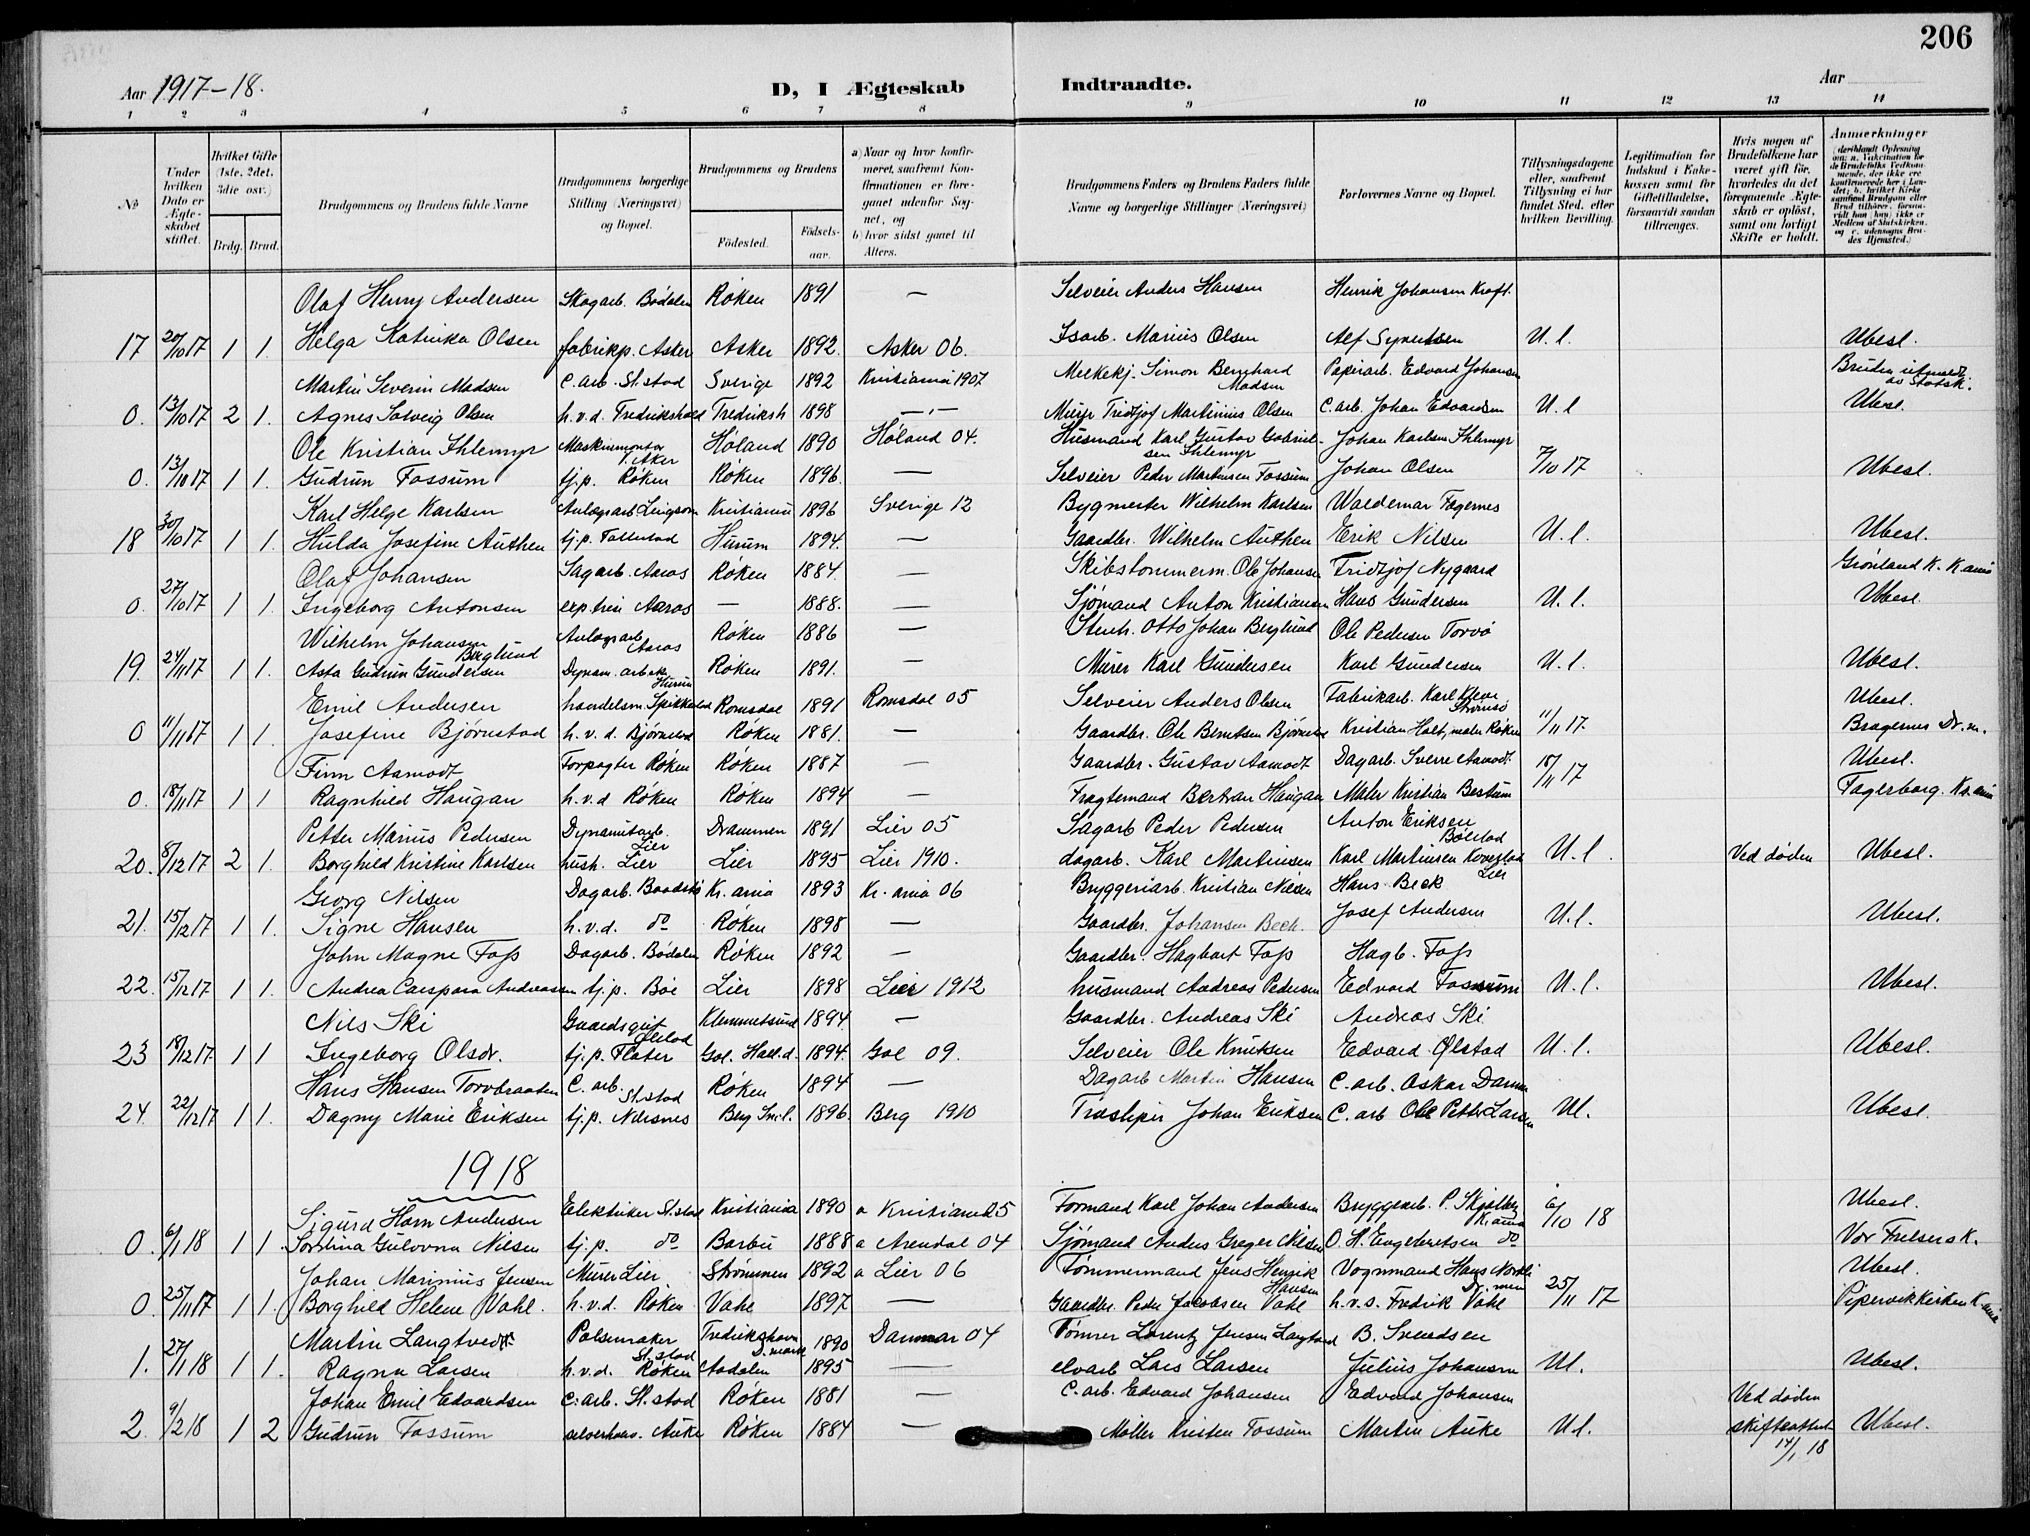 206
Aar 1917-18. D, I Ægteskab Indtraadte. Aar
1 2 3 4 5 6 7 8 9 10 11 12 13 14
No
Under hvilken Dato er Ægteskabet stiftet.
Hvilket Gifte (1ste, 2det, 3die osv.)
Brdg. Brud.
Brudgommens og Brudens fulde Navne
Brudgommens borgerlige Stilling (Næringsvei) og Bopæl.
Brudgommens og Brudens
Fødested. Fødselsaar.
a) Naar og hvor konfirmeret, saafremt Konfirmationen er foregaaet udenfor Sognet, og
b) hvor sidst gaaet til Alters.
Brudgommens Faders og Brudens Faders fulde Navne og borgerlige Stillinger (Næringsvei)
Forlovernes Navne og Bopæl.
Tillysningsdagene eller, saafremt Tillysning ei har fundet Sted, efter hvilken Bevilling.
Legitimation for Indskud i Enkekassen samt for Giftetilladelse, forsaavidt saadan tiltrænges.
Hvis nogen af Brudefolkene har været gift før, hvorledes da det foregaaende Ægteskab er opløst, samt om lovligt Skifte er holdt.
Anmærkninger (deriblandt Oplysning om: a. Vakcination for de Brudefolks Vedkommende, der ikke ere konfirmerede her i Landet; b. hvilket Kirkesamfund Brudgom eller Brud tilhører, forsaavidt han (hun) ikke er Medlem af Statskirken, og c. udensogns Brudes Hjemsted.)
Olaf Henry Andersen Skogarb. Bødalen Røken 1891 — Selveier Anders Hansen Henrik Johansen Kraft.
17 20/10 17 1 1. Helga Katinka Olsen fabrikp. Asker Asker 1892. Asker 06. Isarb. Marius Olsen Alf Syvertsen U. l. Ubesl.
Martin Severin Madsen C. arb. St.stad Sverige 1892 Kristiania 1907 Melkekj. Simon Bernhard Madsen Papirarb. Edvard Johansen Bruden utmeldt av Statsk.
0. 13/10 17 2 1. Agnes Solveig Olsen h.v.d. Fredrikshald Fredriksh 1898 —,— Murer Fridtjof Martinius Olsen C. arb. Johan Edvardsen U. l Ubesl.
Ole Kristian Ihlemyr Maskinmontør V. Aker Høland 1890 Høland 04. Husmand Karl Gustav Gabrielsen Ihlemyr Johan Karlsen Ihlemyr
0. 13/10 17 1 1. Gudrun Fossum tj.p. Røken Røken 1896. — Selveier Peder Martinsen Fossum Johan Olsen 7/10 17 Ubesl.
Karl Helge Karlsen Anlægsarb Lingsom Kristiania 1896 Sverige 12 Bygmester Wilhelm Karlsen Waldemar Fagernes
18 30/10 17 1 1. Hulda Josefine Authen tj.p. Follestad Hurum 1894. — Gaardbr. Wilhelm Authen Erik Nilsen U. l. Ubesl.
Olaf Johansen Sagarb. Aaros Røken 1884. — Skibstømmerm. Ole Johansen Fridtjof Nygaard Grønland K. K.ania
0. 27/10 17 1 1. Ingeborg Antonsen exp.trin Aaros — 1888. — Sjömand Anton Kristiansen Hans Gundersen U. l. Ubesl.
Wilhelm Johansen Berglund Anlægsarb Aaros Røken 1886 — Stenh. Otto Johan Berglund Ole Pedersen Torvö
19. 24/11 17 1 1. Asta Gudrun Gundersen Dynam. arbeske Hurum Røken 1891. — Murer Karl Gundersen Karl Gundersen U. l. Ubesl.
Emil Andersen handelsm. Spikkestad Romsdal 1891 Romsdal 05 Selveier Anders Olsen Fabrikarb. Karl Kleve Strömsö Ubesl.
0 11/11 17 1 1. Josefine Bjørnstad h. v. d. Bjørnstad Røken 1881. — Gaardbr. Ole Berntsen Bjørnstad Kristian Holt, maler Røken 11/11 17. Bragernes Dr.m.
Finn Aamodt Forpagter Røken Røken 1887 — Gaardbr. Gustav Aamodt Dagarb. Sverre Aamodt. 18/11 17 Ubesl.
0. 18/11 17 1 1 Ragnhild Haugan h.v.d Røken Røken 1894 — Fragtemand Bertran Haugan Maler Kristian Bestum Fagerborg. Kr.ania
Petter Marius Pedersen Dynamitarb. Lier Drammen 1891 Lier 05 Sagarb Peder Pedersen Anton Eriksen Böestad
20. 8/12 17 2 1. Borghild Kristine Karlsen hush. Lier Lier 1895 Lier 1910. dagarb. Karl Martinsen Karl Martinsen Kovestad Lier U. l. Ved døden Ubesl.
Georg Nilsen Dagarb. Baadstö Kr. ania 1893 Kr. ania 06 Bryggeriarb. Kristian Nilsen Hans Beck
21. 15/12 17 1 1. Signe Hansen h.v.d. do Røken 1898 — Gaardbr. Johansen Beck. Josef Andersen U. l. Ubesl.
John Magne Foss Dagarb. Bødalen Røken 1892 — Gaardbr. Hagbart Foss Hagb. Foss
22. 15/12 17 1 1. Andrea Caspara Andreassen tj.p. Böe Lier 1898 Lier 1912 husmand Andreas Pedersen Edvard Fossum U. l. Ubesl.
Nils Ski Gaardsgut Ølstad Klemmetsrud 1894 — Gaardbr. Andreas Ski Andreas Ski
23 18/12 17. 1 1 Ingeborg Olsdr. tj.p. Flater Gol. Hall.d. 1894. Gol 09. Selveier Ole Knutsen Edvard Ølstad U. l. Ubesl.
Hans Hansen Torvbraaten C. arb. St.stad Røken 1894 — Dagarb Martin Hansen C. arb. Oskar
24. 22/12 17 1 1. Dagny Marie Eriksen tj.p. Nærsnes Berg Sm.l. 1896. Berg 1910 Træsliper Johan Eriksen C. arb Ole Petter Larsen Ul. Ubesl.
1918
Sigurd Horn Andersen Elektriker St.stad Kristiania 1890 a Kristiania 05 Formand Karl Johan Andersen Bryggearb. P. Skjølberg Kr.ania 6/10 18 Ubesl.
0. 6/1 18 1 1. Gulovna Nilsen tj.p. do Barbu 1888 a Arendal 04 Sjömand Anders Greger Nilsen O. H. Engebretsen do Vor Frelsers K.
Johan Marinius Jensen Murer Lier Strömmen 1892 a Lier 06 Tømmermand Jens Henrik Hansen Vognmand Hans Norkli Dr.men Ubesl.
0. 25/11 17 1 1. Borghild Helene Vahl. h.v.d. Røken Vahl 1897 — Gaardbr. Peder Jacobsen Vahl h.v.s. Fredrik Vahl 25/11 17 Pipervikkirken K.ania
Martin Langtvedt Pølsemaker St.stad Fredrikshavn D.mark 1890 Danmar 04 Tømrer Lorentz Jensen Langtved B. Svendsen
1. 27/1 18 1 1. Ragna Larsen h.v.d. Røken Aadalen 1895 — elvarb Lars Larsen Julius Johansen Ul. Ubesl.
Johan Emil Edvardsen C. arb. St.stad Røken 1881 — C. arb. Edvard Johansen Edvard Johansen Ved døden
2. 9/2 18 1 2 Gudrun Fossum selverhv. Auke Røken 1884 — Møller Kristen Fossum Martin Auke U. l. skifteattest 14/1 18 Ubesl.